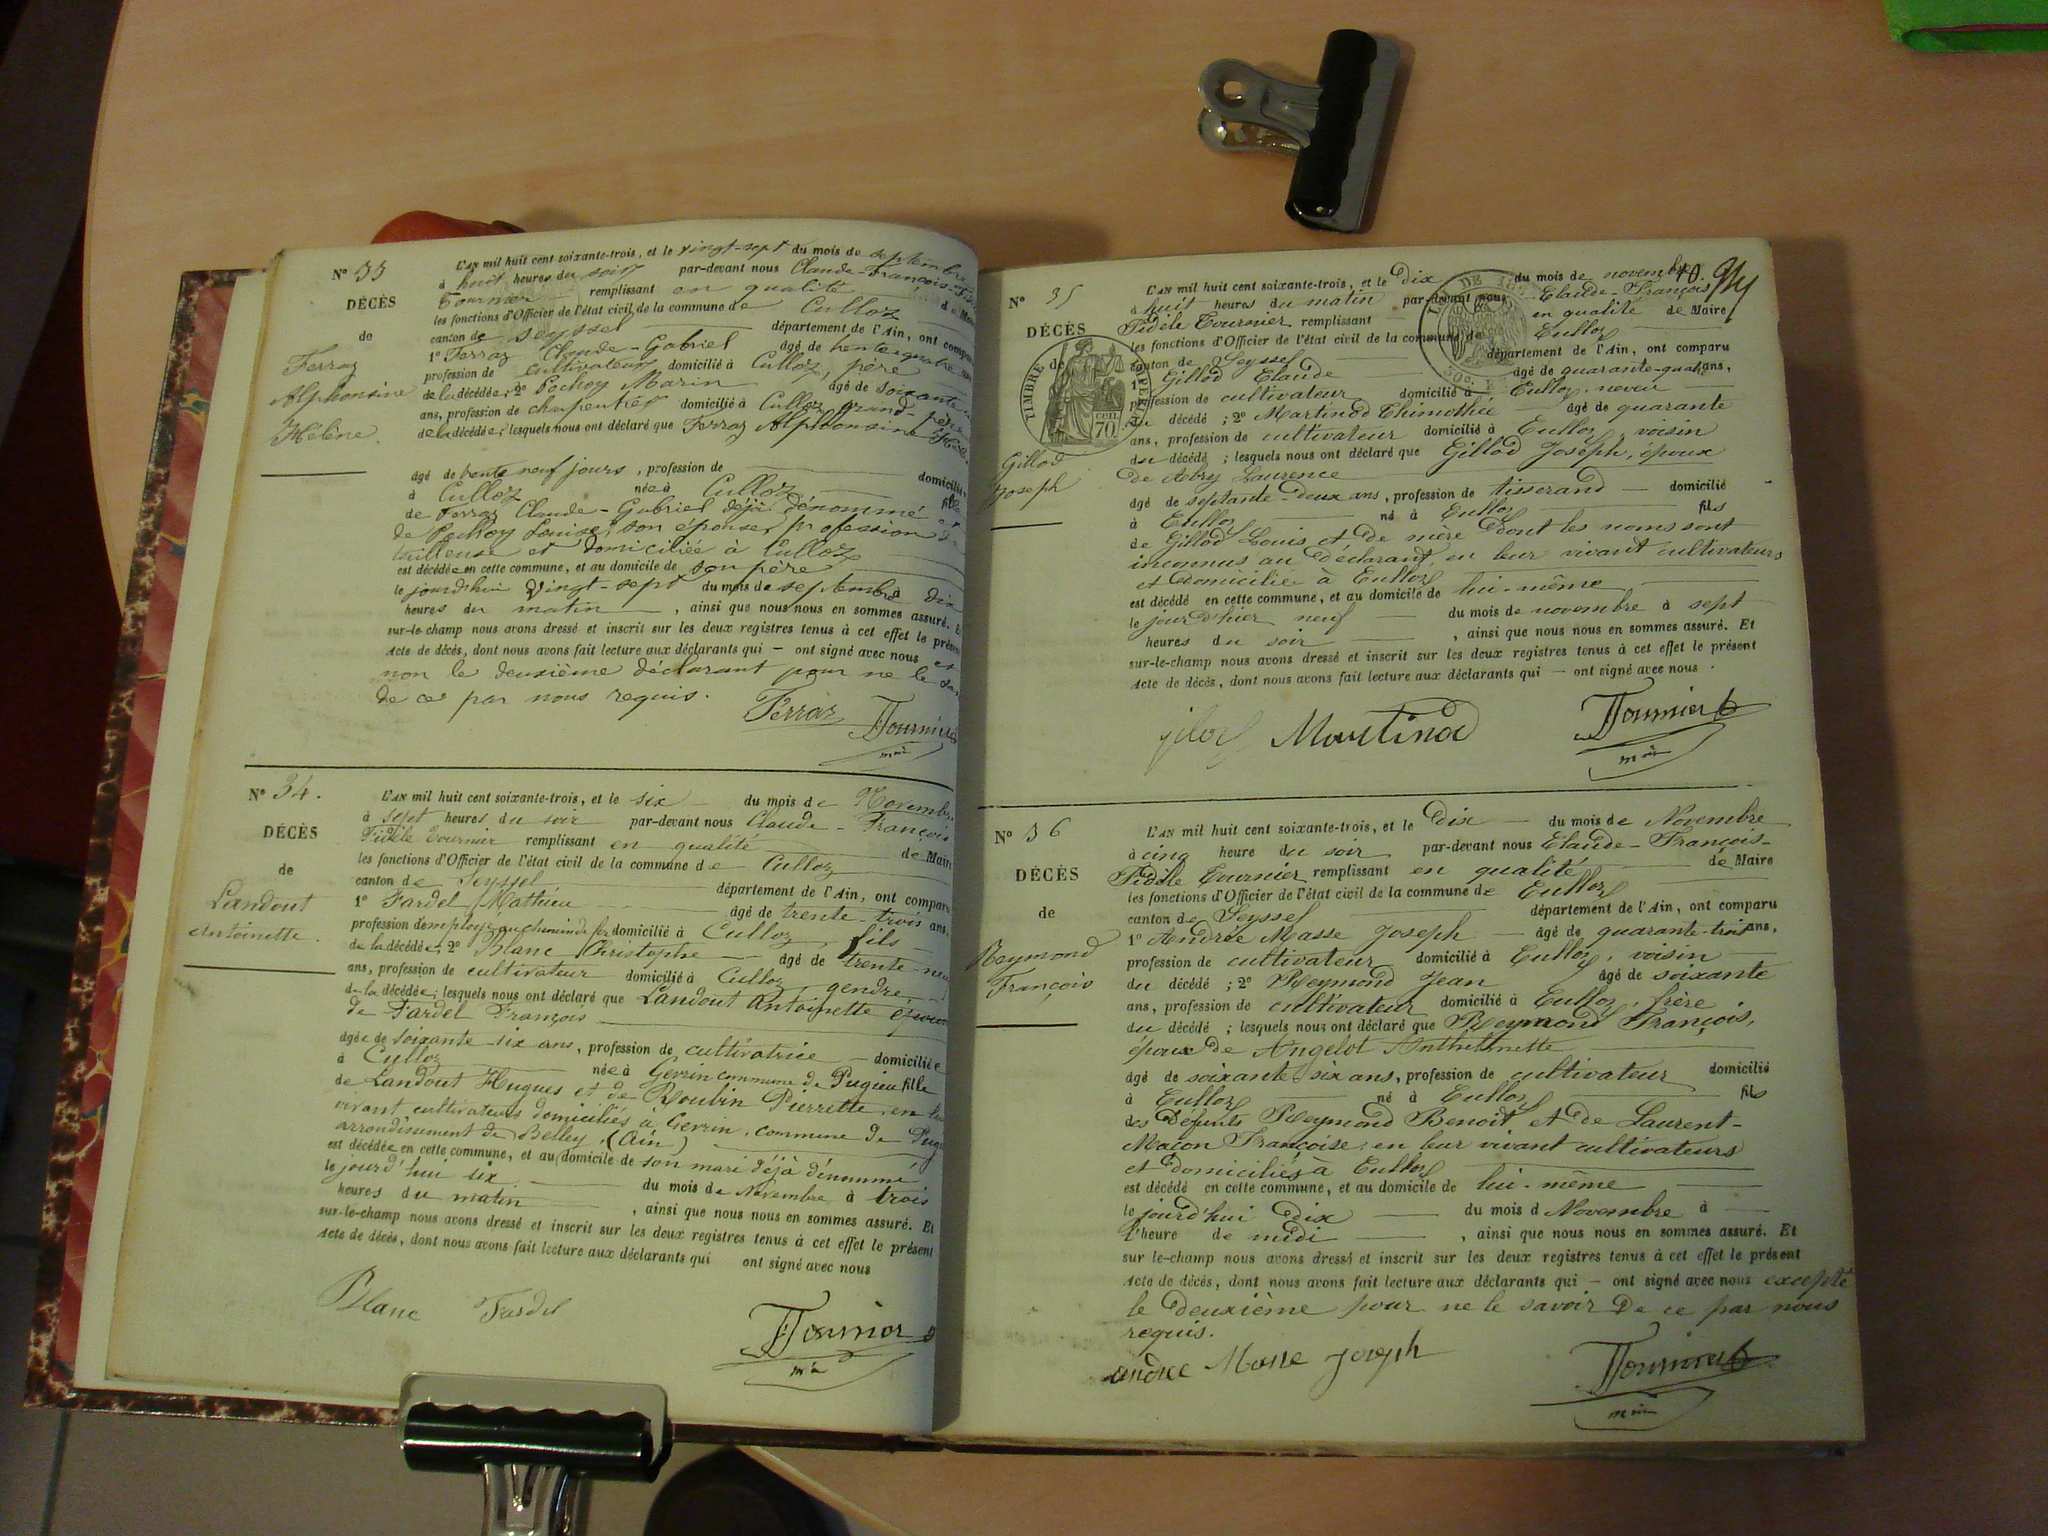 N° 33
DÉCÈS
de
Ferraz
Alphonsine
Hélène.
L'AN mil huit cent soixante-trois, et le vingt-sept du mois de septembre
à huit heures du soir par-devant nous Claude-François-
Tournier remplissant en qualité de
les fonctions d'Officier de l'état civil de la commune de Culloz
canton de Seyssel département de l'Ain, ont comparu
1° Ferraz Claude-Gabriel âgé de trente-quatre
profession de cultivateur domicilié à Culloz, père
de la décédée; 2° Pochoy Marin âgé de soixante
ans, profession de charpentier domicilié à Culloz, grand-père
de la décédée; lesquels nous ont déclaré que Ferraz Alphonsine
âgé de trente neuf jours, profession de domiciliée
à Culloz née à Culloz fille
de Ferraz Claude-Gabriel déjà dénommé et
de Pochoy Louise, son épouse, profession de
tailleuse et domiciliée à Culloz
est décédée en cette commune, et au domicile de son père
le jourd'hui vingt-sept du mois de septembre à dix
heures du matin, ainsi que nous nous en sommes assuré. Et
sur-le-champ nous avons dressé et inscrit sur les deux registres tenus à cet effet le présent
Acte de décès, dont nous avons fait lecture aux déclarants qui — ont signé avec nous et
non le deuxième déclarant pour ne le
de ce par nous requis.
Ferraz Tournier
N° 34.
DÉCÈS
de
Landout
Antoinette.
L'AN mil huit cent soixante-trois, et le six du mois de Novembre
à sept heures du soir par-devant nous Claude-François
Fidèle Tournier remplissant en qualité de Maire
les fonctions d'Officier de l'état civil de la commune de Culloz
canton de Seyssel département de l'Ain, ont comparu
1° Fardel Mathieu âgé de trente-trois ans,
profession d'employé au chemin de fer domicilié à Culloz, fils
de la décédée; 2° Blanc Christophe âgé de trente-neuf
ans, profession de cultivateur domicilié à Culloz, gendre
de la décédée; lesquels nous ont déclaré que Landout Antoinette épouse
de Fardel François
âgée de soixante-six ans, profession de cultivatrice domiciliée
à Culloz née à Gevrin commune de Pugieu fille
de Landout Hugues et de Roulin Pierrette, en leur
vivant cultivateurs domiciliés à Gevrin, commune de
arrondissement de Belley, (Ain)
est décédée en cette commune, et au domicile de son mari déjà dénommé
le jourd'hui six du mois de Novembre à trois
heures du matin, ainsi que nous nous en sommes assuré. Et
sur-le-champ nous avons dressé et inscrit sur les deux registres tenus à cet effet le présent
Acte de décès, dont nous avons fait lecture aux déclarants qui ont signé avec nous
Blanc Fardel Tournier
10.
N° 35
DÉCÈS
de
Gillod
Joseph
TIMBRE IMPÉRIAL
70
L'AN mil huit cent soixante-trois, et le dix du mois de novembre
à huit heures du matin par-devant nous Claude-François
Fidèle Tournier remplissant en qualité de Maire
les fonctions d'Officier de l'état civil de la commune de Culloz
canton de Seyssel département de l'Ain, ont comparu
1° Gillod Claude âgé de quarante-quatre ans,
profession de cultivateur domicilié à Culloz, neveu
du décédé; 2° Martinod Thimothée âgé de quarante
ans, profession de cultivateur domicilié à Culloz, voisin
du décédé; lesquels nous ont déclaré que Gillod Joseph, époux
de Abry Laurence
âgé de septante-deux ans, profession de tisserand domicilié
à Culloz né à Culloz fils
de Gillod Louis et de mère dont les noms sont
inconnus au déclarant, en leur vivant cultivateurs
et domiciliés à Culloz
est décédé en cette commune, et au domicile de lui-même
le jour d'hier neuf du mois de novembre à sept
heures du soir, ainsi que nous nous en sommes assuré. Et
sur-le-champ nous avons dressé et inscrit sur les deux registres tenus à cet effet le présent
Acte de décès, dont nous avons fait lecture aux déclarants qui — ont signé avec nous.
Martinod Tournier
N° 36
DÉCÈS
de
Reymond
François
L'AN mil huit cent soixante-trois, et le dix du mois de Novembre
à cinq heure du soir par-devant nous Claude-François-
Fidèle Tournier remplissant en qualité de Maire
les fonctions d'Officier de l'état civil de la commune de Culloz
canton de Seyssel département de l'Ain, ont comparu
1° Andrée Masse Joseph âgé de quarante-trois ans,
profession de cultivateur domicilié à Culloz, voisin
du décédé; 2° Reymond Jean âgé de soixante
ans, profession de cultivateur domicilié à Culloz, frère
du décédé; lesquels nous ont déclaré que Reymond François,
époux de Angelot Anthelmette
âgé de soixante-six ans, profession de cultivateur domicilié
à Culloz né à Culloz fils
des défunts Reymond Benoît et de Laurent-
Maçon Françoise, en leur vivant cultivateurs
et domiciliés à Culloz
est décédé en cette commune, et au domicile de lui-même
le jourd'hui dix du mois d Novembre à
l'heure de midi, ainsi que nous nous en sommes assuré. Et
sur le-champ nous avons dressé et inscrit sur les deux registres tenus à cet effet le présent
Acte de décès, dont nous avons fait lecture aux déclarants qui — ont signé avec nous excepté
le deuxième pour ne le savoir de ce par nous
requis.
andree Masse joseph Tournier